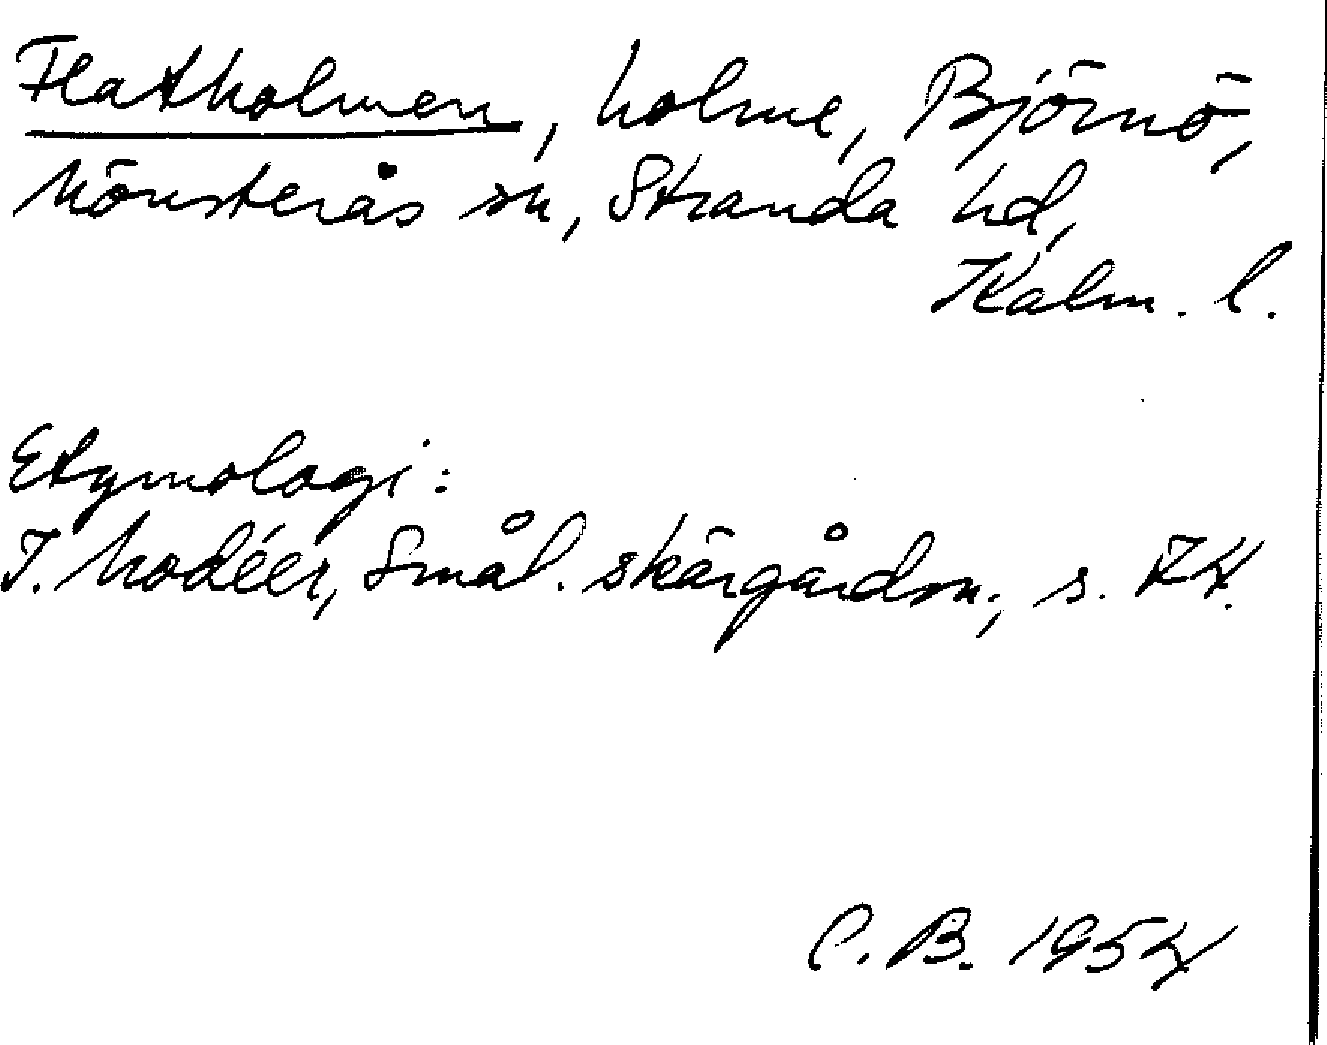 Flatholmen, holme, Björnö,
Mönsterås sn, Stranda hd,
Kalm. l.
Etymologi:
I. Modéer, Smål. skärgårdsn., s. 74.
C. B. 1954